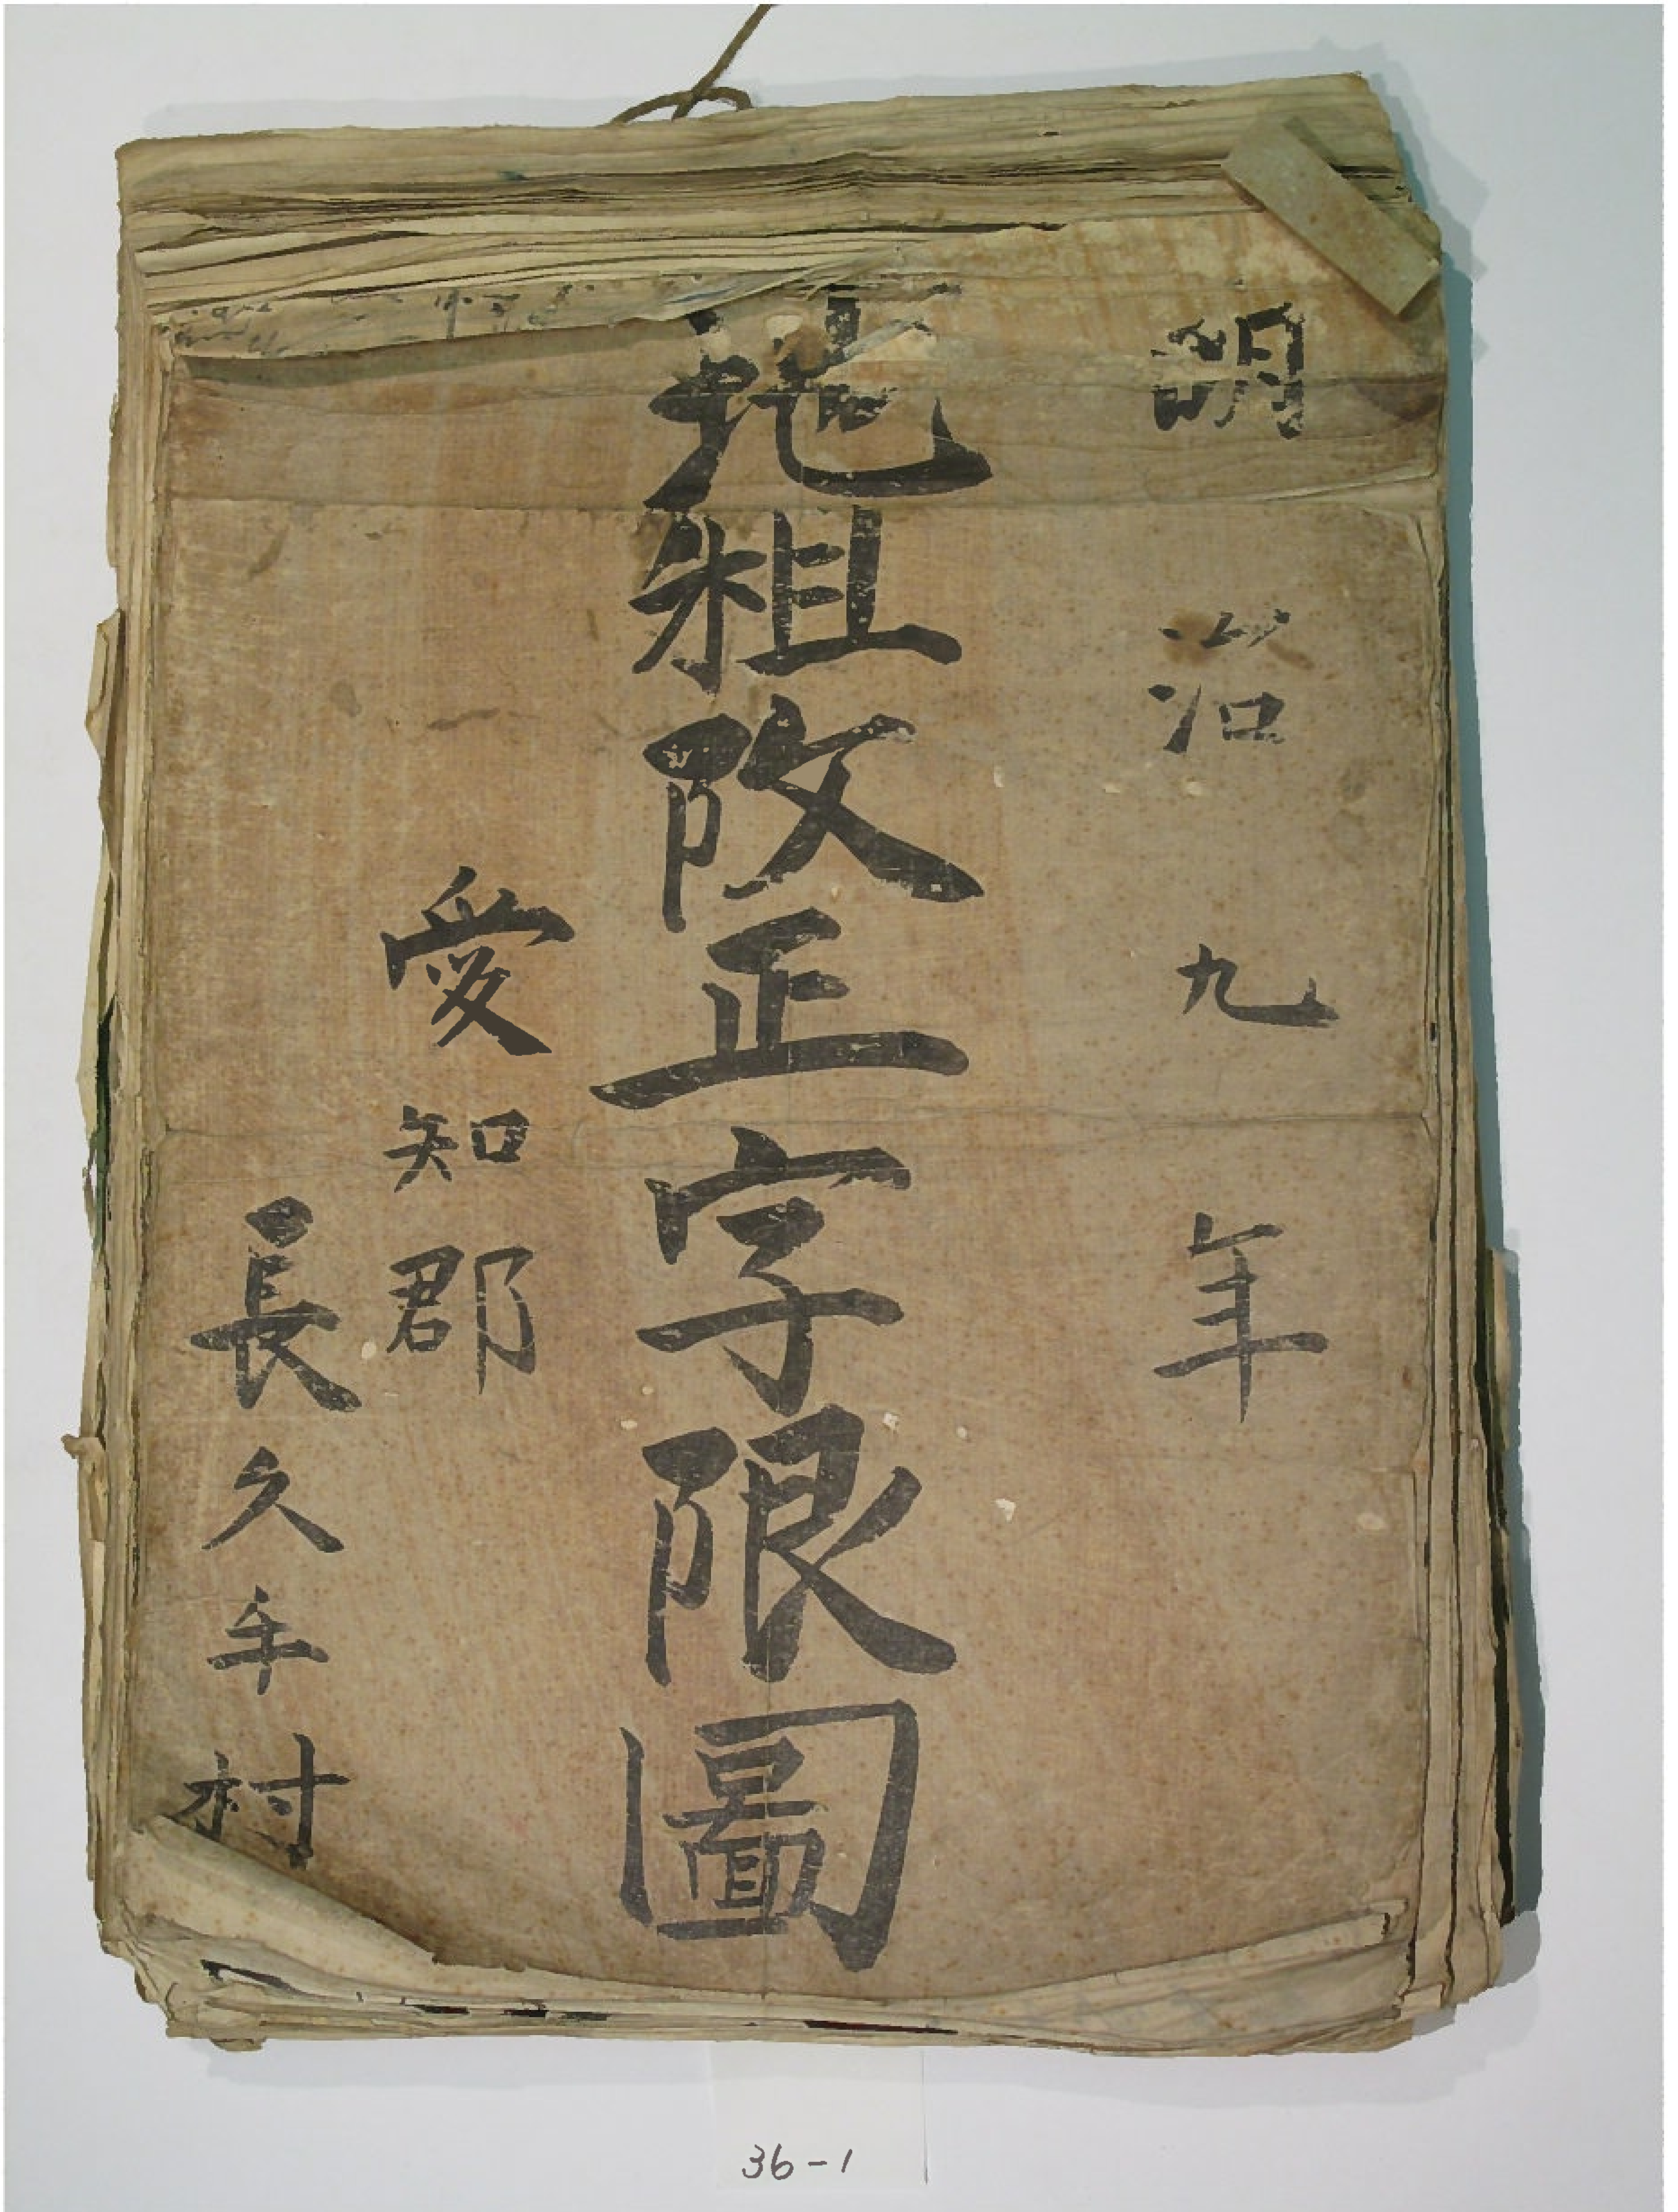 明治九年
地租改正字限圖
愛知郡
長久手村
36-1